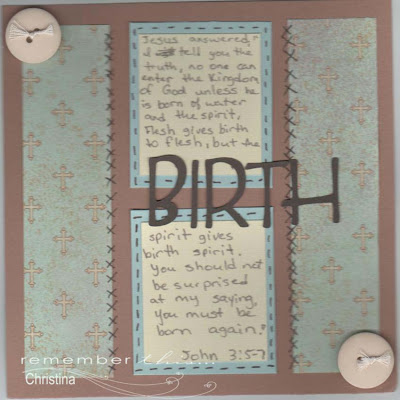 Jesus answered, "
I tell you the
truth, no one can
enter the Kingdom
of God unless he
is born of water
and the spirit,
Flesh gives birth
to flesh, but the
BIRTH
spirit gives
birth spirit.
You should not
be surprised
at my saying,
You must be
born again."
John 3:5-7
remember
Christina